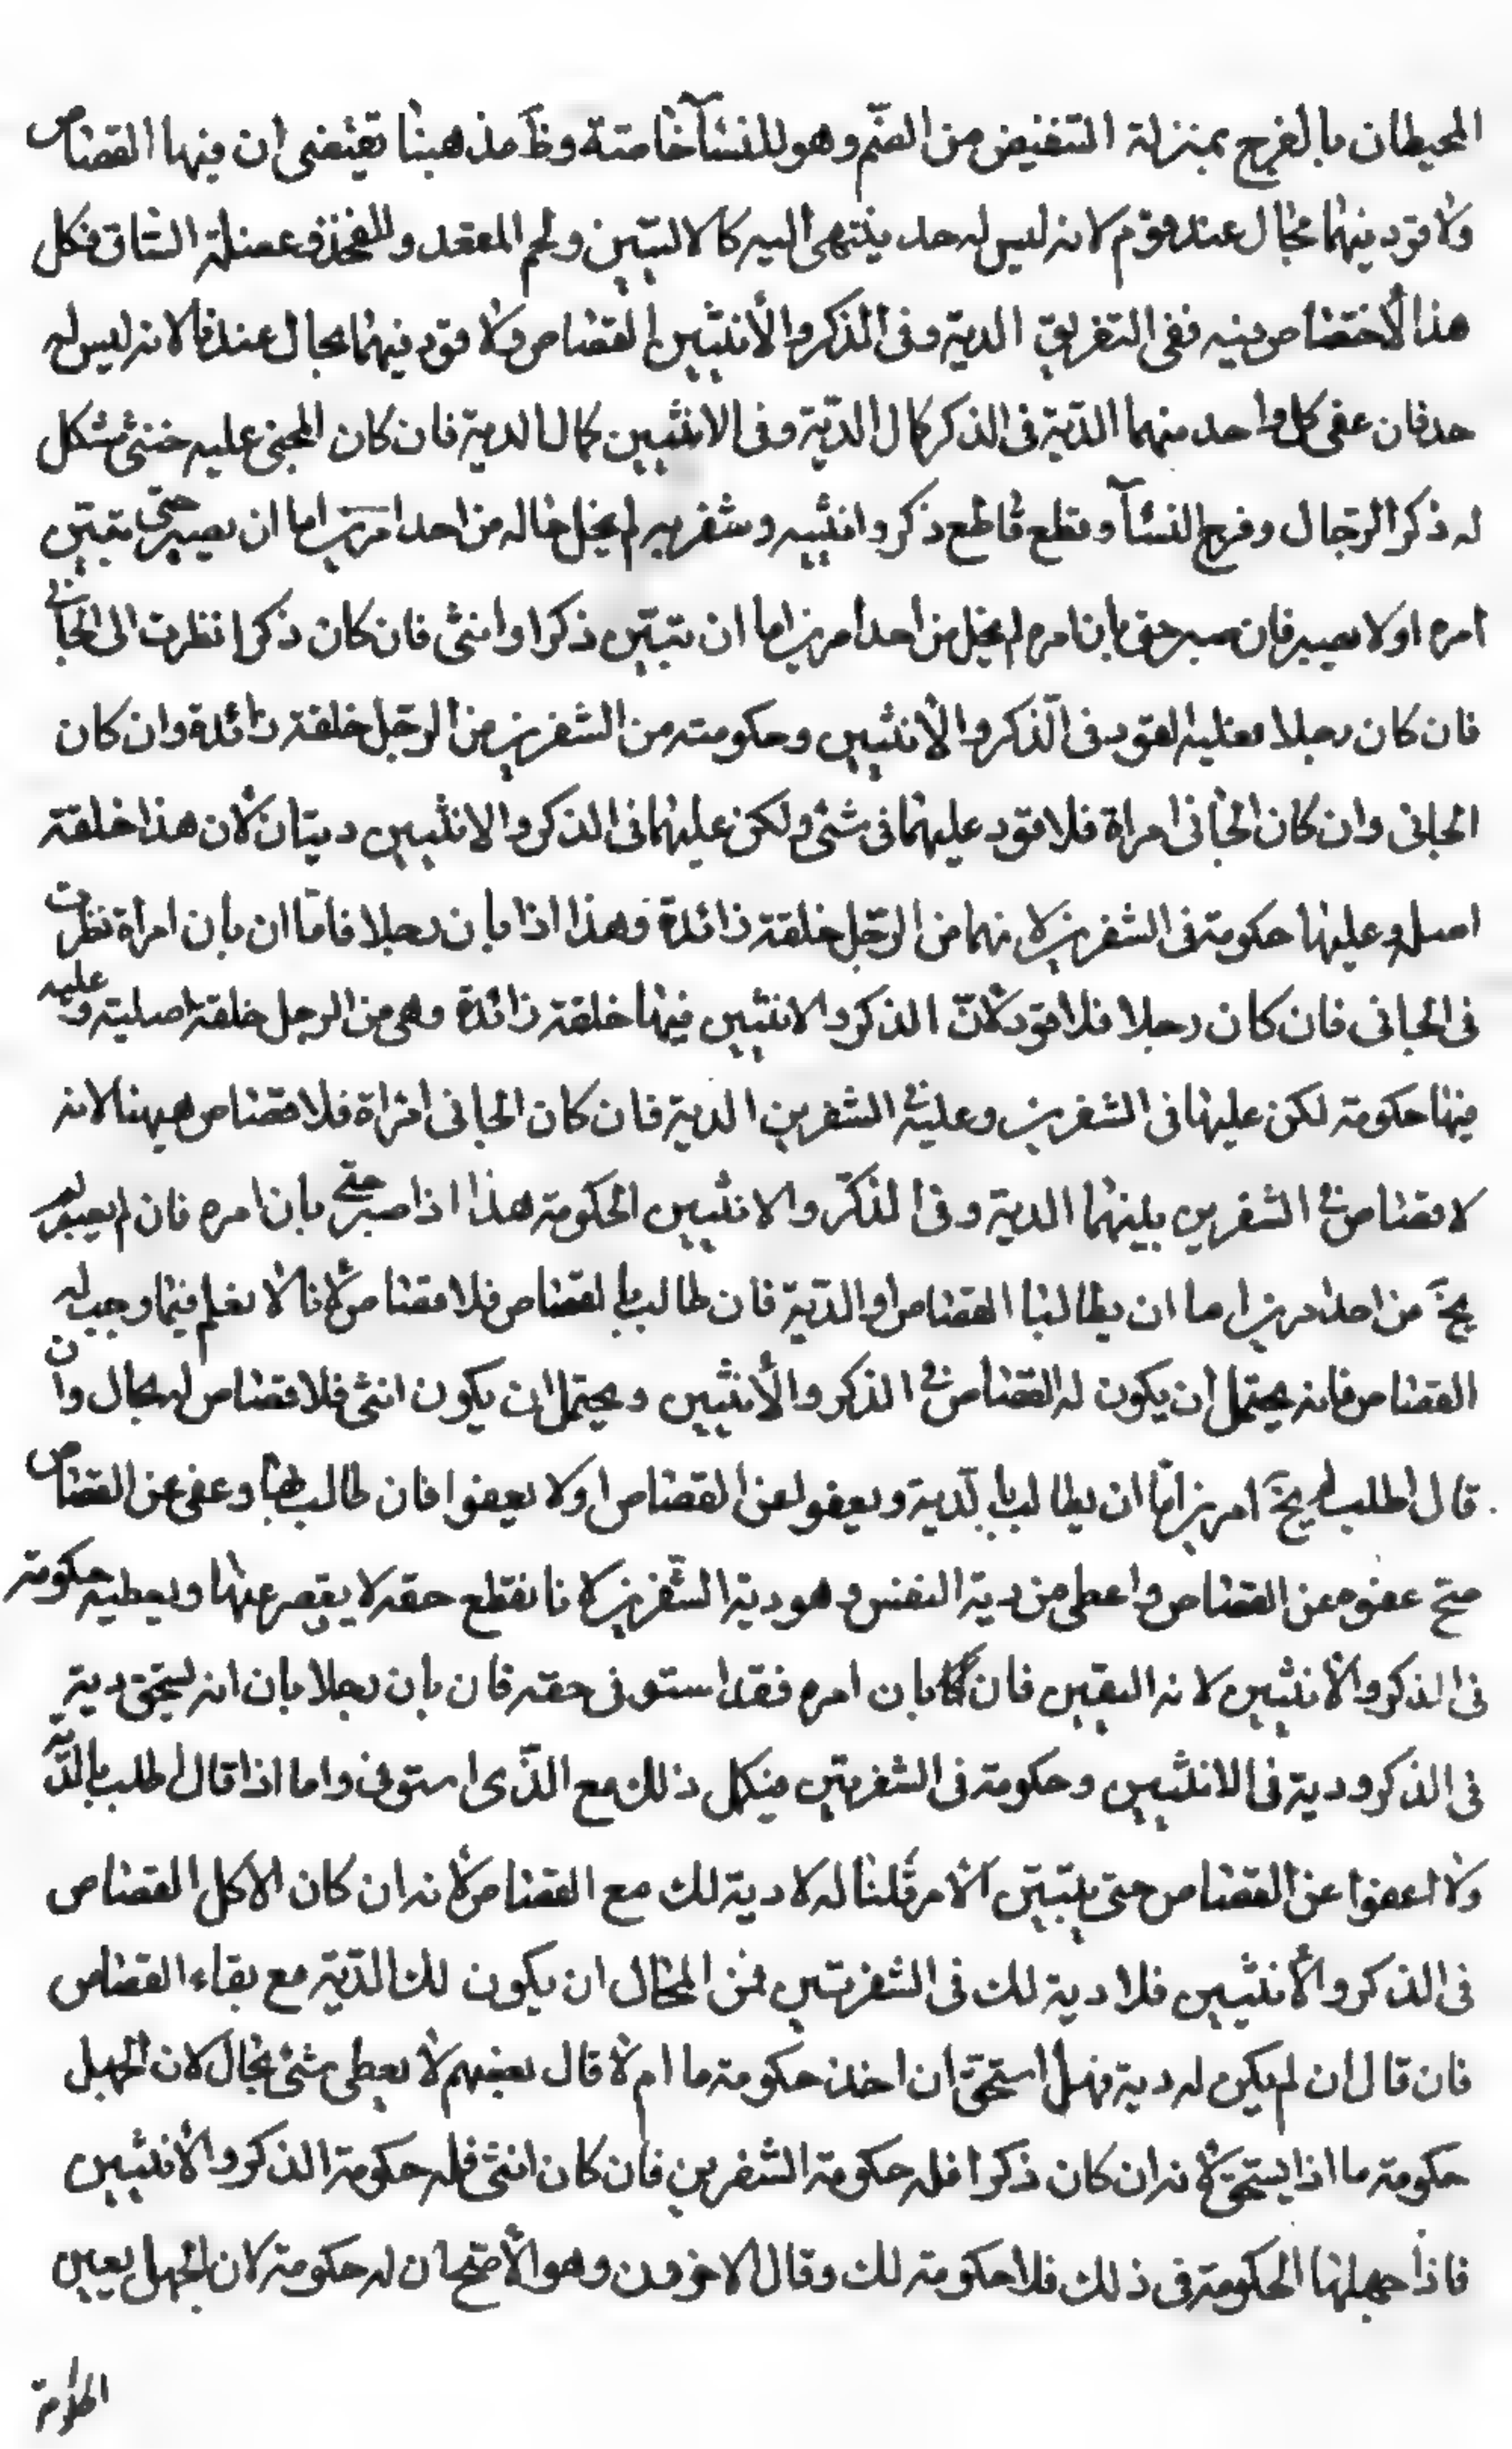 المحيطان بالفرج بمنزلة التغفيض من الفم وهو للنسآء خاصة وظ مذهبنا تقتضى ان فيها القصاص
ولا قود فيهما بحال عند قوم لانه ليس له حد ينتهى اليه كالاليتين ولحم المعقد والفخذ وعضلة الساق فكل
هذا لاختصاص فيه ففى التفريق الدية وفى الذكر والأنثيين القصاص ولا قود فيهما بحال عندنا لانه ليس له
حد فان عفى كل واحد منهما الدّية فى الذكر كمال الدّية وفى الانثيين كمال الدية فان كان المجنى عليه خنثى مشكل
له ذكر الرّجال وفرج النسآء وقطع قاطع ذكره وانثييه وشفريه لم يخل حاله من احد امرين اما ان يصبر حتّى يتبيّن
امره اولا يصبر فان صبر حتى بان امره لم يخل من احد امرين اما ان يتبيّن ذكرا او انثى فان كان ذكرا نظرت الى الجانى
فان كان رجلا فعليه القود فى الذكر والأنثيين وحكومته من الشفرين من الرّجل خلقة زائدة وان كان
الجانى وان كان الجانى امراة فلا قود عليهما فى شئ ولكن عليهما فى الذكر والانثيين ديتان لأن هذا خلقة
اصل وعليها حكومة فى الشفرين لانهما من الرّجل خلقة زائدة وهذا اذا بان رجلا فامّا ان بان امراة نظرت
فى الجانى فان كان رجلا فلا قود لأنّ الذكر والانثيين فيها خلقة زائدة وهى من الرجل خلقة اصلية وعليه
فيها حكومة لكن عليها فى الشفرين وعليه فى الشفرين الدية فان كان الجانى امراة فلا قصاص هيهنا لانه
لا قصاص فى الشفرين بلينهما الدية وفى الذكر والانثيين الحكومة هذا اذا صبر حتى بان امره فان لم يصبر لم
يخ من احد امرين اما ان يطالبنا القصاص او الدّية فان طالب بالقصاص فلا قصاص لأنا لا نعلم فيما وجب له
القصاص فانه يحتمل ان يكون له القصاص فى الذكر والأنثيين ويحتمل ان يكون انثى فلا قصاص له بحال وان
قال اطلب لم يخ امرين امّا ان يطالب بالدّية ويعفو عن القصاص او لا يعفوا فان طالب بها وعفى عن القصاص
صح عفوه عن القصاص واعطى من دية النفس وهو دية الشّفرين لانا نقطع حقه لا يقصر عنها ويعطيه حكومة
فى الذكر والأنثيين لانه اليقين فان بان امره فقد استوفى حقه فان بان رجلا بان انه ليستحق دية
فى الذكر ودية فى الانثيين وحكومة فى الشفرتين فيكمل ذلك مع الذّى استوفى واما اذا قال اطلب بالدّية
ولا اعفوا عن القصاص حتى يتبيّن الأمر قلنا له لا دية لك مع القصاص لأنه ان كان الاكل القصاص
فى الذكر والأنثيين فلا دية لك فى الشفرتين فمن المحال ان يكون لك الدّية مع بقاء القصاص
فان قال ان لم يكن له دية فهل استحق ان اخذ حكومة ما ام لا قال بعضهم لا يعطى شئ بحال لان الجهل
حكومة ما اذا يستحق لأنه ان كان ذكرا فله حكومة الشفرين فان كان انثى فله حكومة الذكر والأنثيين
فاذا جهلنا الحكومة فى ذلك فلا حكومة لك وقال الاخرون وهو الأصح ان له حكومة لان الجهل بعين
الحكومة